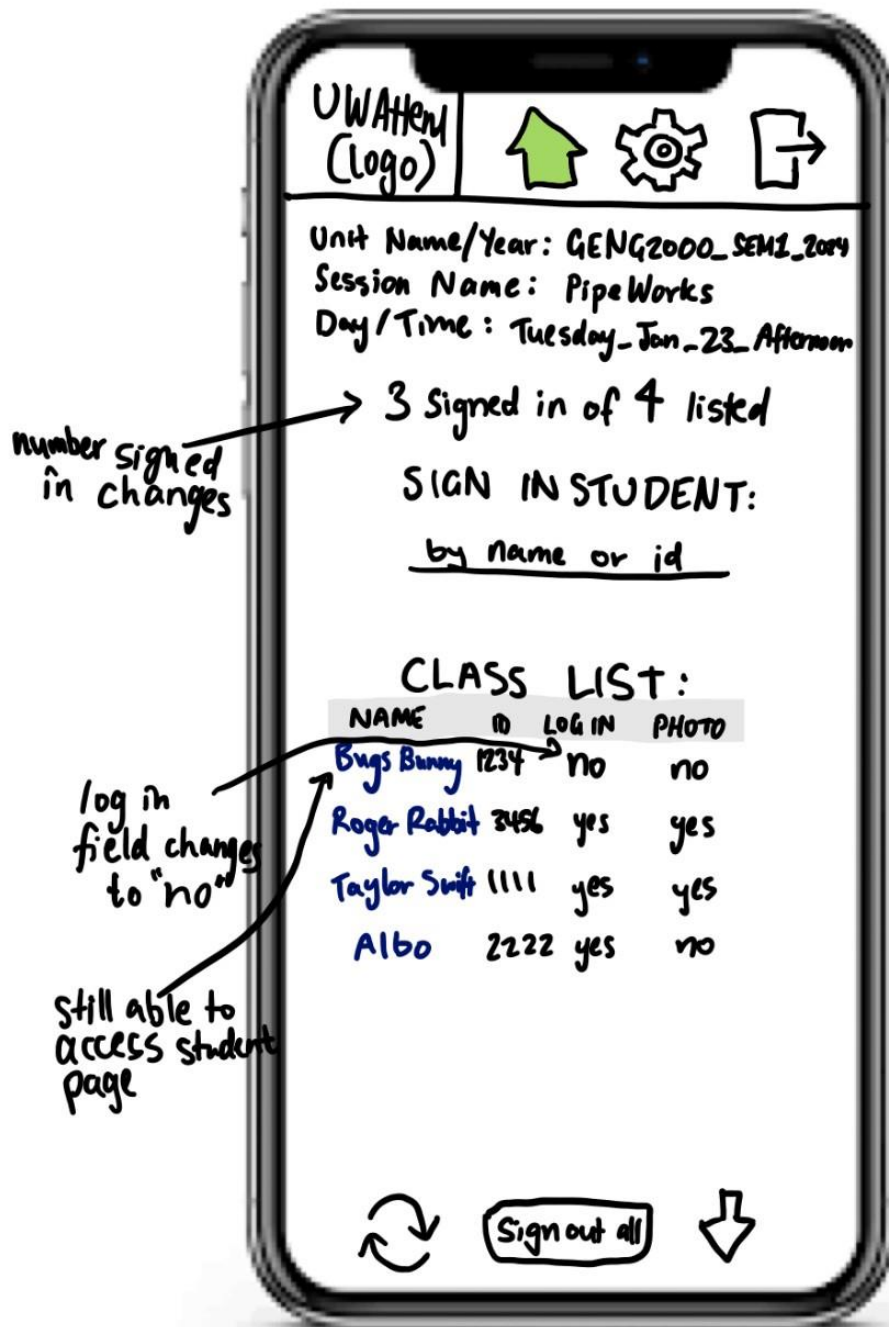 UWAttend
(logo)
Unit Name/Year: GENG2000_SEM1_2024
Session Name: PipeWorks
Day/Time: Tuesday_Jan_23_Afternoon
3 signed in of 4 listed
number signed
in changes
SIGN IN STUDENT:
by name or id
CLASS LIST:
NAME ID LOG IN PHOTO
Bugs Bunny 1234 no no
Roger Rabbit 3456 yes yes
Taylor Swift 1111 yes yes
Albo 2222 yes no
log in
field changes
to "no"
still able to
access student
page
Sign out all